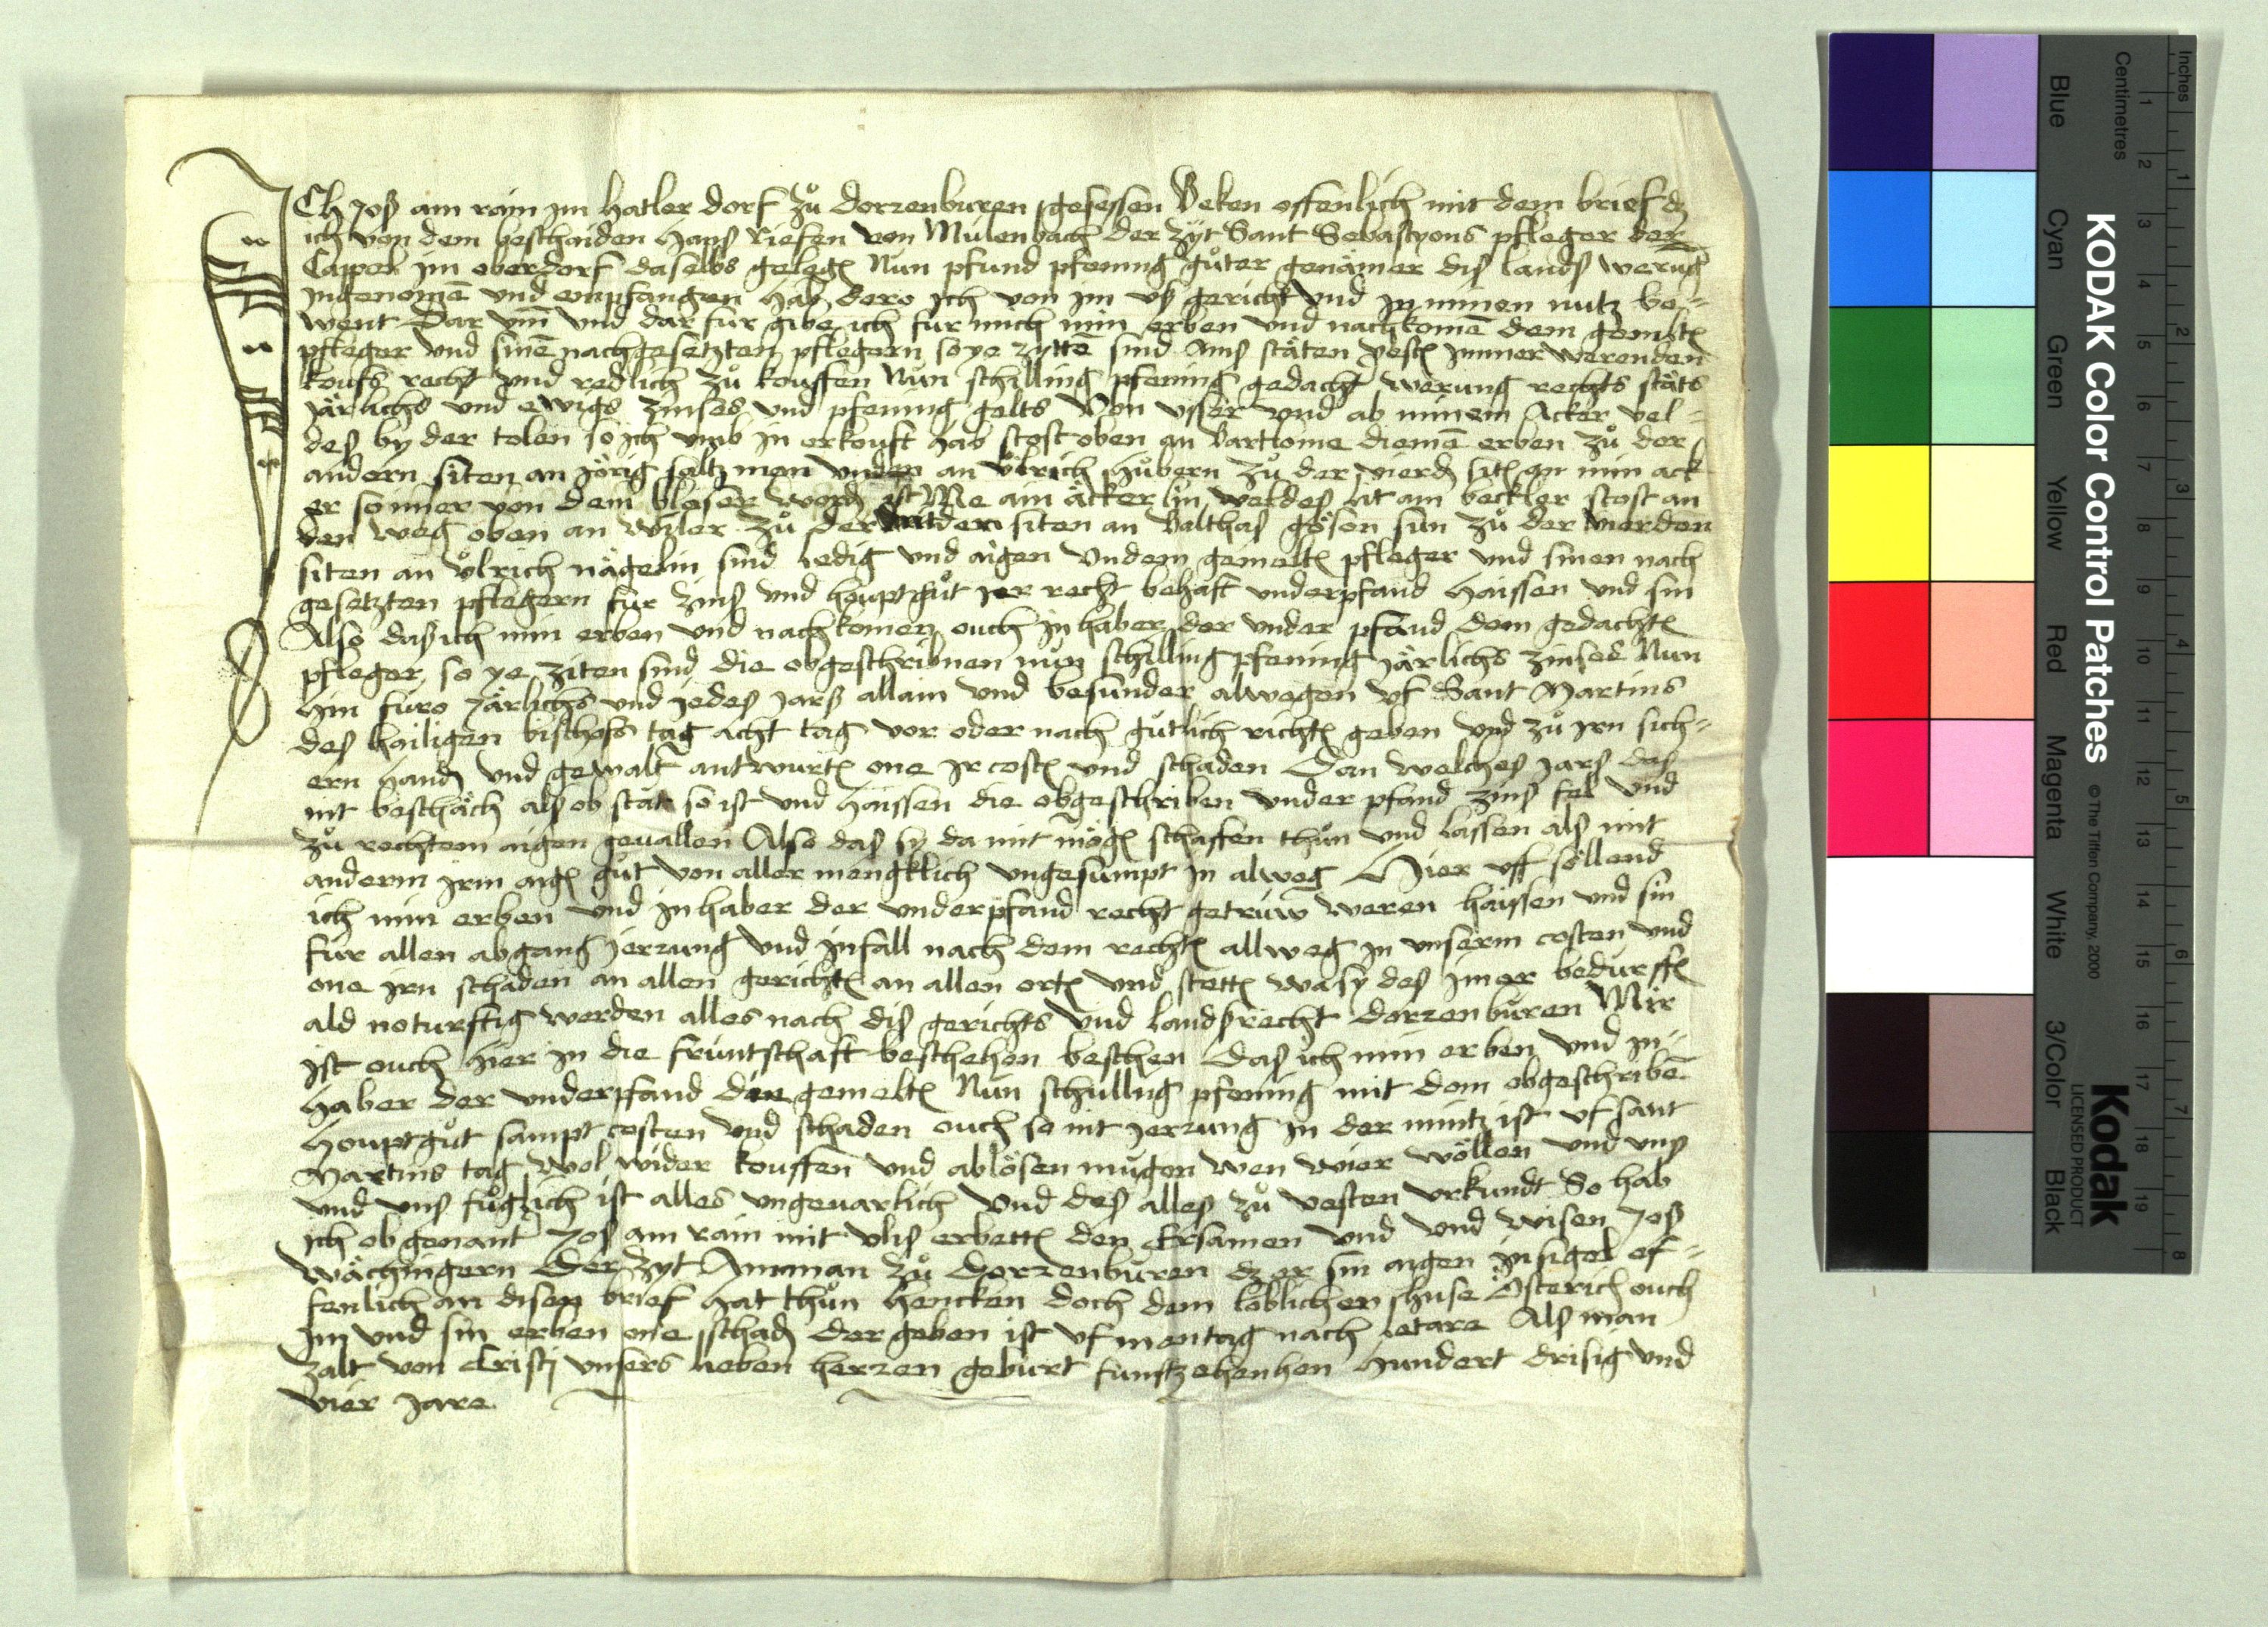 ICh Jos am rain im hatler dorf zů dorrenburen gesessen Beken offenlich mit dem brief dz
ich von dem beschaiden Hans riefen von Mulenbach der zyt Sant Sebastyons pfleger der
Cappel im oberdorf daselbs gelegē Nun pfund pfening gůter genämer dis lands werung
ingenomē und empfangen hab dero ich von im us gericht und in minen nutz be-
went Dar um und dar fur gibe ich fur mich min erben und nachkomē dem gemeltē
pfleger und sinē nachgesetzten pflegern so ye zyttē sind Ains stäten vestē immer werenden
koufs recht und redlich zů kouffen Nun schilling pfening gedacht werung rechts stäts
järlichs und ewigs zinses und pfening gelts Von usser und ab minem Acker vel-
des by der tolen so ich umb in erkouft hab stost oben an Bartlome diemē erben zů der
andern siten an Jörig saltzman unden an ůlrich hůbern zů der vierdē sitē an min ack
er so inner von dem bloser word ist Me ain äckerlin veldes lit am beckler stost an
den weg oben an wiler zů der dritden siten an Balthas gösen sun zů der vierden
siten an ůlrich nägelin sind ledig und aigen Undem gemeltē pfleger und sinen nach
gesetzten pflegern fur zins und houptgůt ier recht behaft underpfand haissen und sin
Also das ich min erben und nachkomen ouch inhaber der under pfand dem gedachtē
pfleger so ye ziten sind die obgeschribnen nun schilling pfening järlichs zinses Nun
hin furo järlichs und jedes jars allain und besunder alwegen uf Sant Martins
des hailigen bischofs tag acht tag vor oder nach gůtlich richtē geben und zů irn sich-
ern handē und gewalt antwurtē one ir costē und schaden Dan welches jars das
nit beschäch als ob stät so ist und haissen die obgeschriben under pfand zins fel und
zů rechtem aigen geuallen Also das sy da mit mögē schaffen thůn und lassen als mit
anderm irm aigē gůt von aller mengklich ungesumpt in alweg Hier uff söllend
ich min erben und inhaber der underpfand recht getruw weren haissen und sin
fur allen abgang ierrung und infall nach dem rechtē allweg in unserm costen und
one irn schaden an allen gerichtē an allen ortē und stettē wa sy des imer bedurffē
ald noturftig werden alles nach dis gerichts und landsrecht dorrenburen Mir
ist ouch hier in die fruntschaft beschehen beschen Das ich min erben und in-
haber der underpfand die gemeltē Nun schillng pfening mit dem obgeschribē
houptgůt sampt costen und schaden ouch so nit ierrung in der muntz ist uf sant
Martins tag wol wider kouffen und ablösen mugen wen wier wöllen und uns
und uns fůglich ist alles ungeuarlich Und des alles zů vesten urkundt So hab
ich obgenant Jos am rain mit vlis erbettē den Ersamen und und wisen Jos
wächingern Der zyt Amman zů Dorrenburen dz er sin aigen insigel of-
fenlich an disen brief hat thůn hencken doch dem loblichen huse Österich ouch
im und sin erben one schadē der geben ist uf mentag nach letare Als man
zalt von Cristj unsers lieben herren geburt funftzehenhen hundert drisig und
vier jare
Inches
Centimetres
1 2 3 4 5 6 7 8
1 2 3 4 5 6 7 8 9 10 11 12 13 14 15 16 17 18 19
KODAK Color Control Patches © The Tiffen Company, 2000
Kodak
LICENSED PRODUCT
Blue Cyan Green Yellow Red Magenta White 3/Color Black